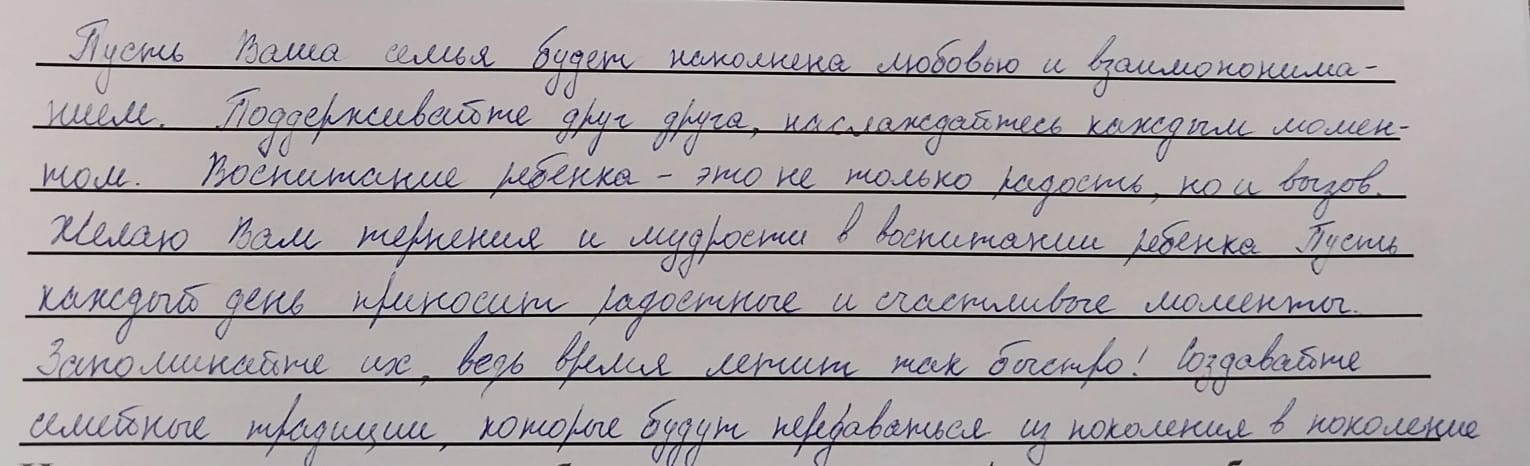 Пусть Ваша семья будет наполнена любовью и взаимопонима-
нием. Поддерживайте друг друга, наслаждайтесь каждым момен-
том. Воспитание ребенка - это не только радость, но и вызов.
Желаю Вам терпения и мудрости в воспитании ребенка Пусть
каждый день приносит радостные и счастливые моменты.
Запоминайте их, ведь время летит так быстро! Создавайте
семейные традиции, которые будут передаваться из поколения в поколение